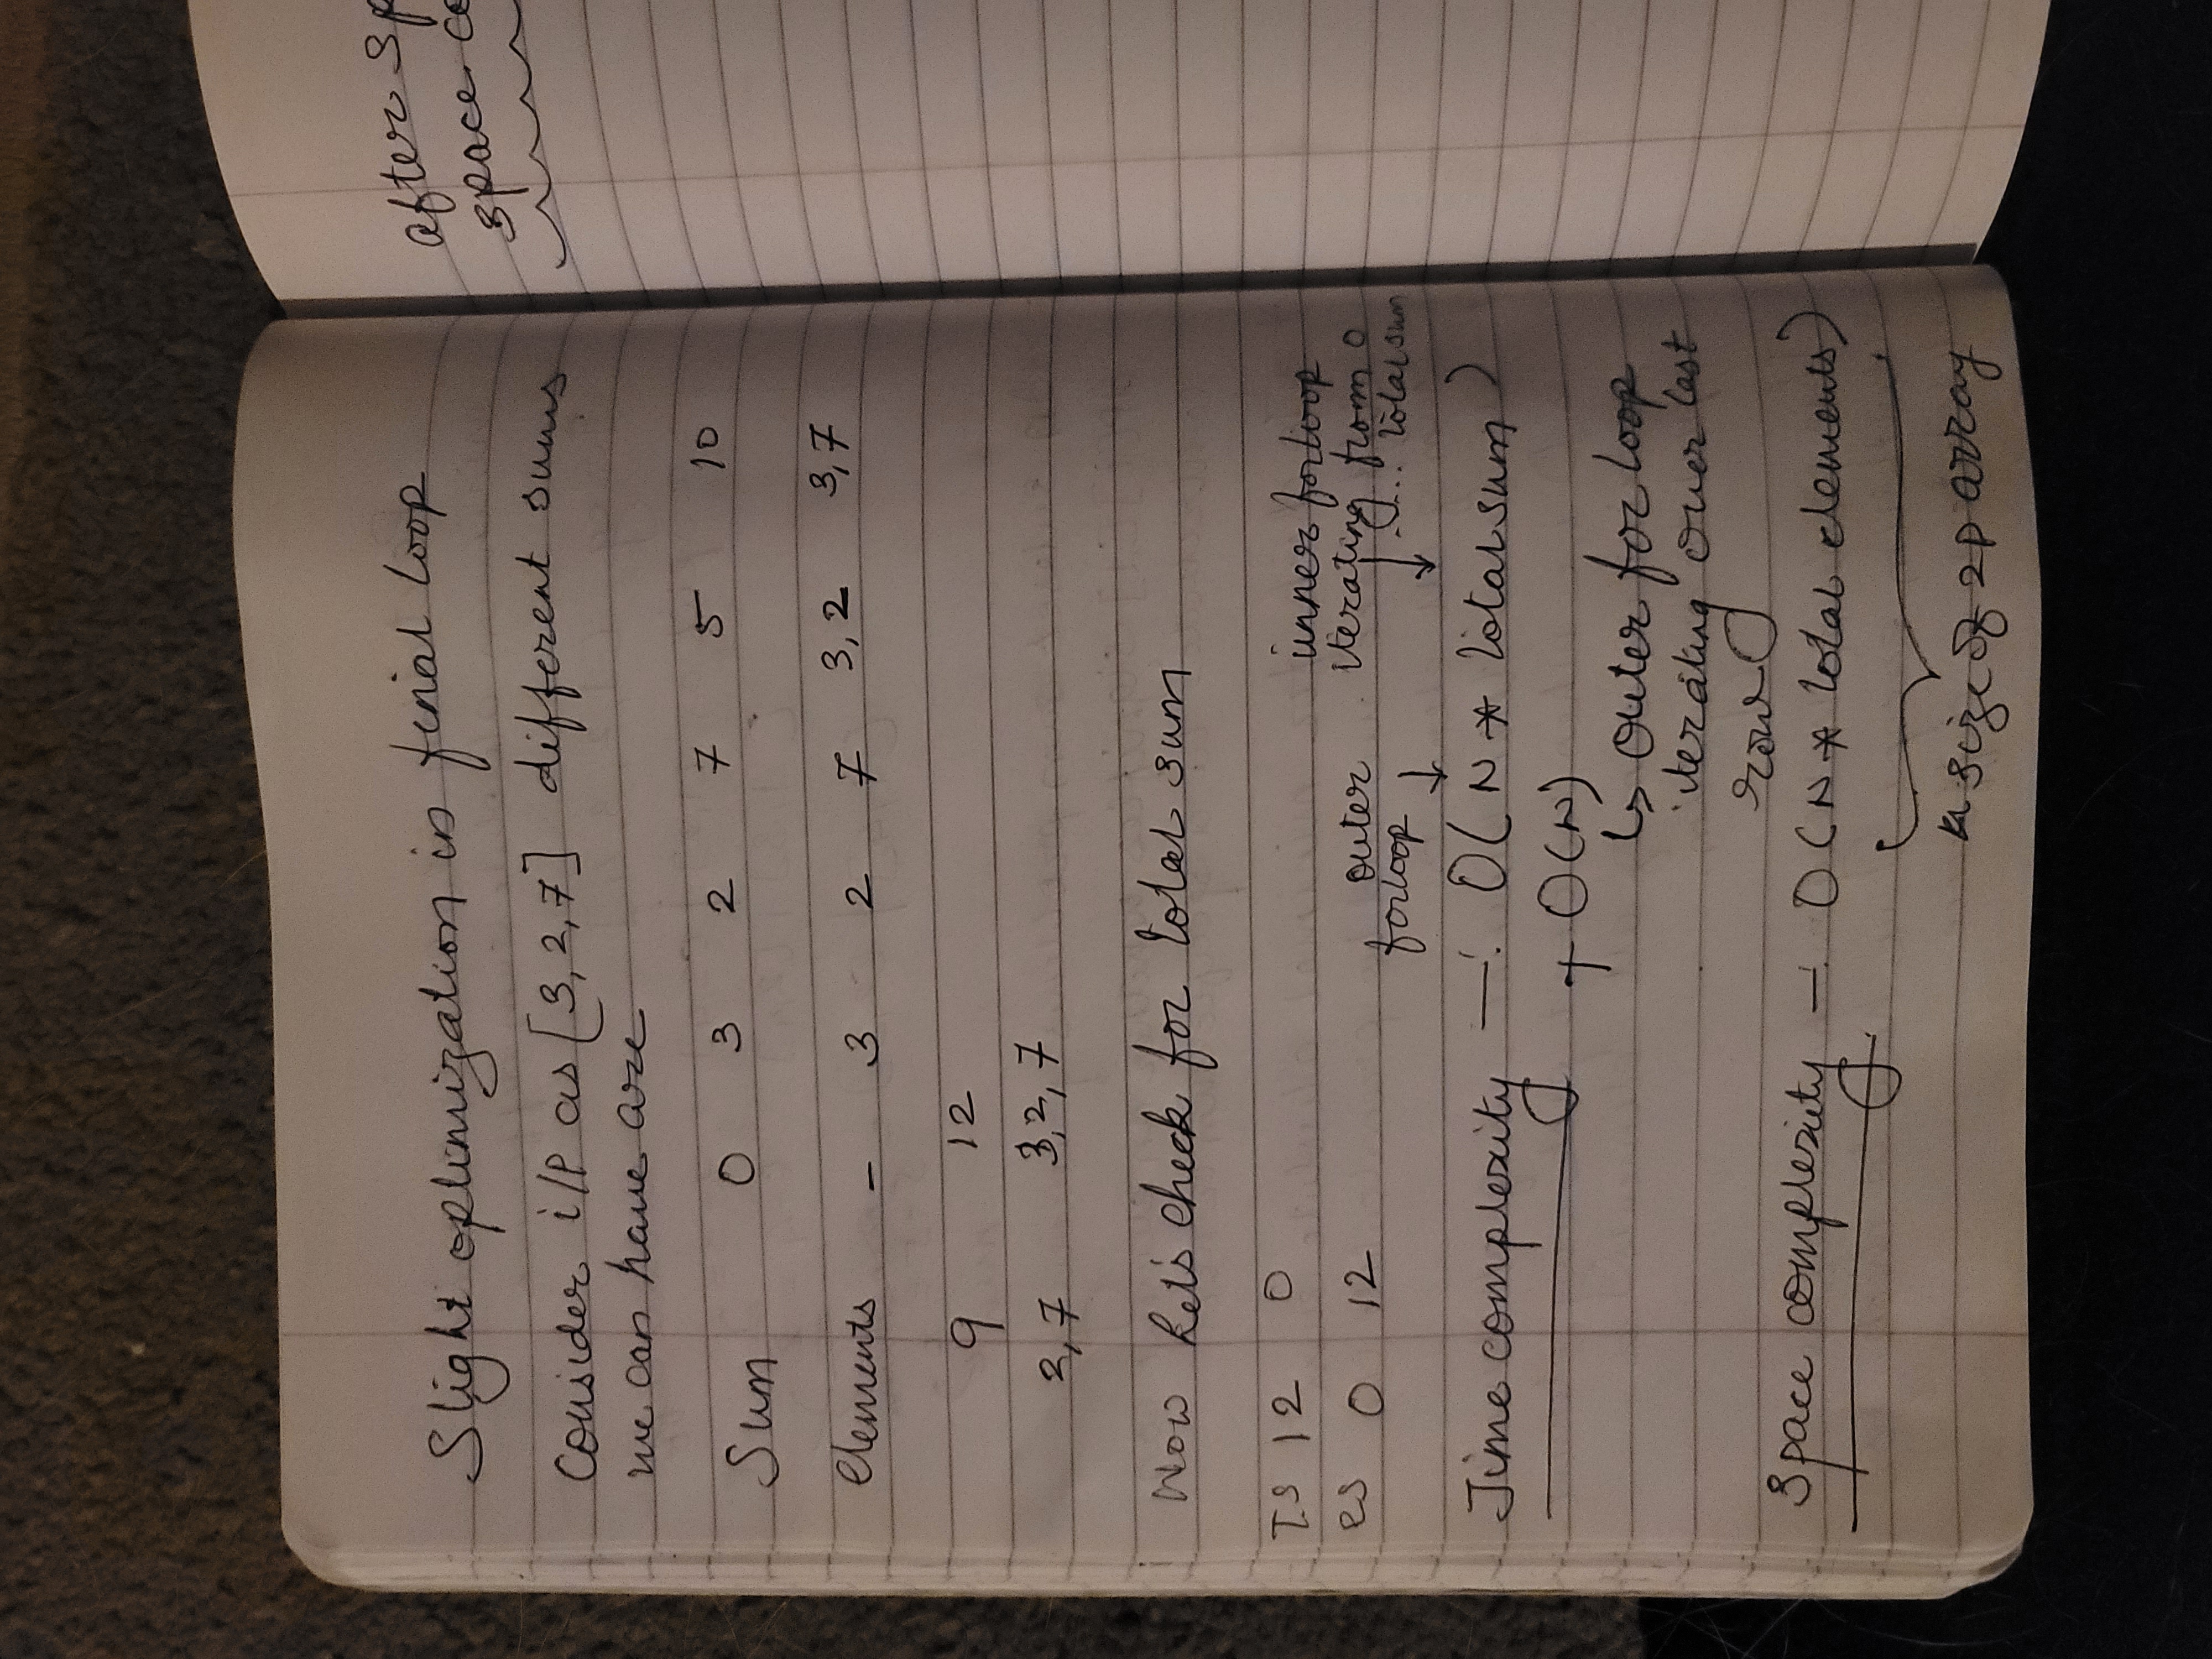 Slight optimization in final loop
Consider i/p as [3, 2, 7] different sums
we can have are
Sum 0 3 2 7 5 10
Elements - 3 2 7 3, 2 3, 7
9 12
2, 7 3, 2, 7
Now Let's check for total sum
TS 12 0
RS 0 12
inner for loop
iterating from 0
..... total sum
outer
for loop
Time complexity —: O(N * total sum)
+ O(N)
↳ outer for loop
iterating over last
row
Space complexity —: O(N * total elements)
size of 2D array
after sp
space co